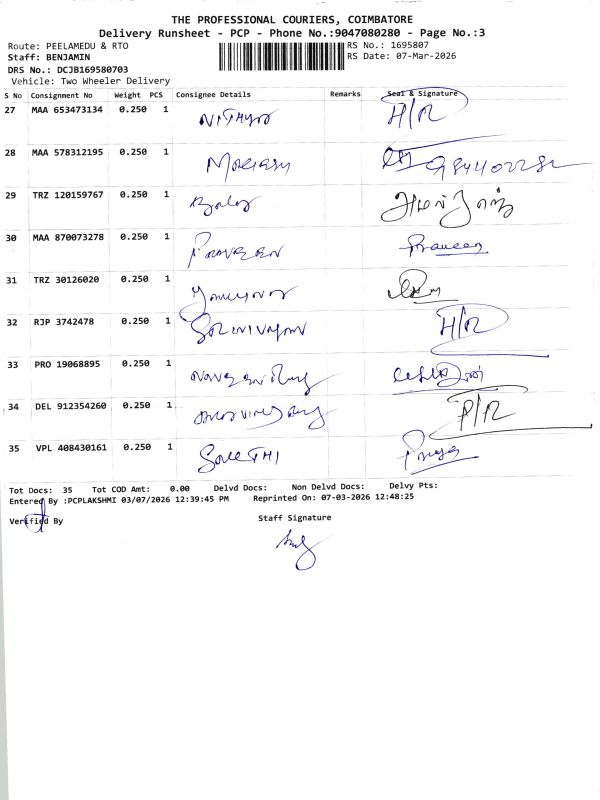 THE PROFESSIONAL COURIERS, COIMBATORE
Delivery Runsheet - PCP - Phone No.:9047080280 - Page No.:3
Route: PEELAMEDU & RTO
RS No.: 1695807
Staff: BENJAMIN
RS Date: 07-Mar-2026
DRS No.: DCJB169580703
Vehicle: Two Wheeler Delivery
S No Consignment No Weight PCS Consignee Details Remarks Seal & Signature
27 MAA 653473134 0.250 1 H/R
28 MAA 578312195 0.250 1
29 TRZ 120159767 0.250 1
30 MAA 870073278 0.250 1 PRAVEEN Praveen
31 TRZ 30126020 0.250 1
32 RJP 3742478 0.250 1 H/R
33 PRO 19068895 0.250 1
34 DEL 912354260 0.250 1 P/R
35 VPL 408430161 0.250 1 Priya
Tot Docs: 35 Tot COD Amt: 0.00 Delvd Docs: Non Delvd Docs: Delvy Pts:
Entered By :PCPLAKSHMI 03/07/2026 12:39:45 PM Reprinted On: 07-03-2026 12:48:25
Verified By
Staff Signature